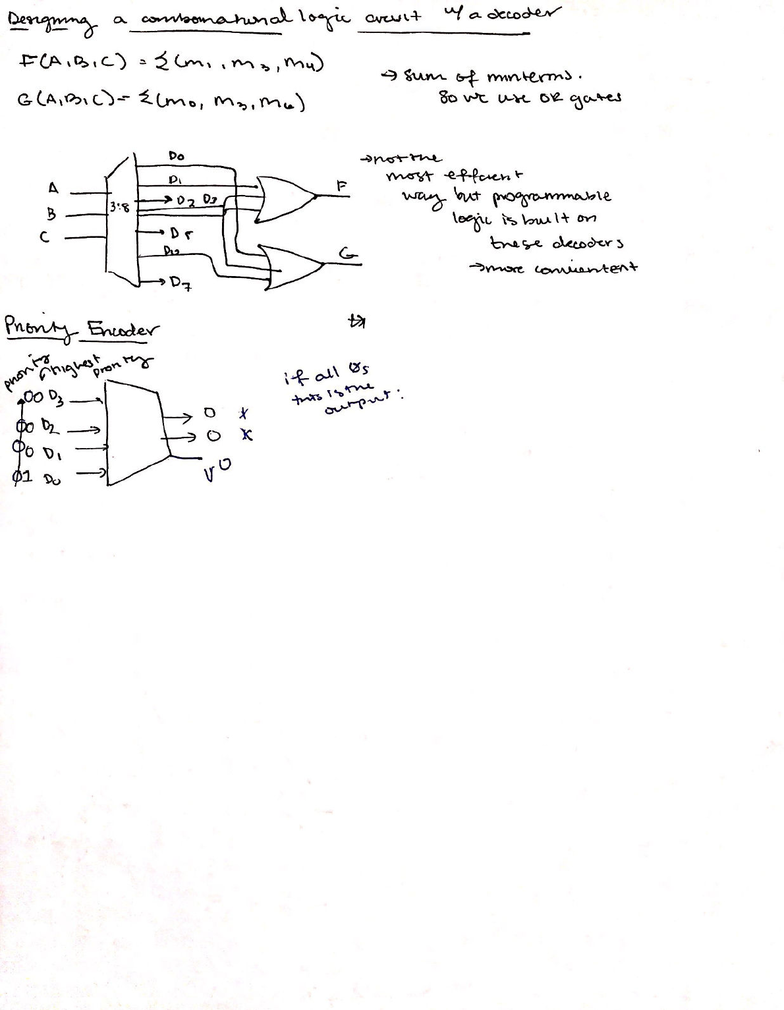 Designing a combonatural logic circuit w/ a decoder
F(A,B,C) = Σ(m1, m3, m4)
→ sum of minterms.
so we use OR gates
G(A,B,C) = Σ(m0, m3, m6)
D0
D1
D2 D3
D5
D7
A
B
C
3:8
F
G
→ not the
most efficient
way but programmable
logic is built on
these decoders
→ more convientent
Priority Encoder
priority
highest priority
00 D3
00 D2
00 D1
01 D0
0 x
0 x
V 0
if all 0s
this is the
output: